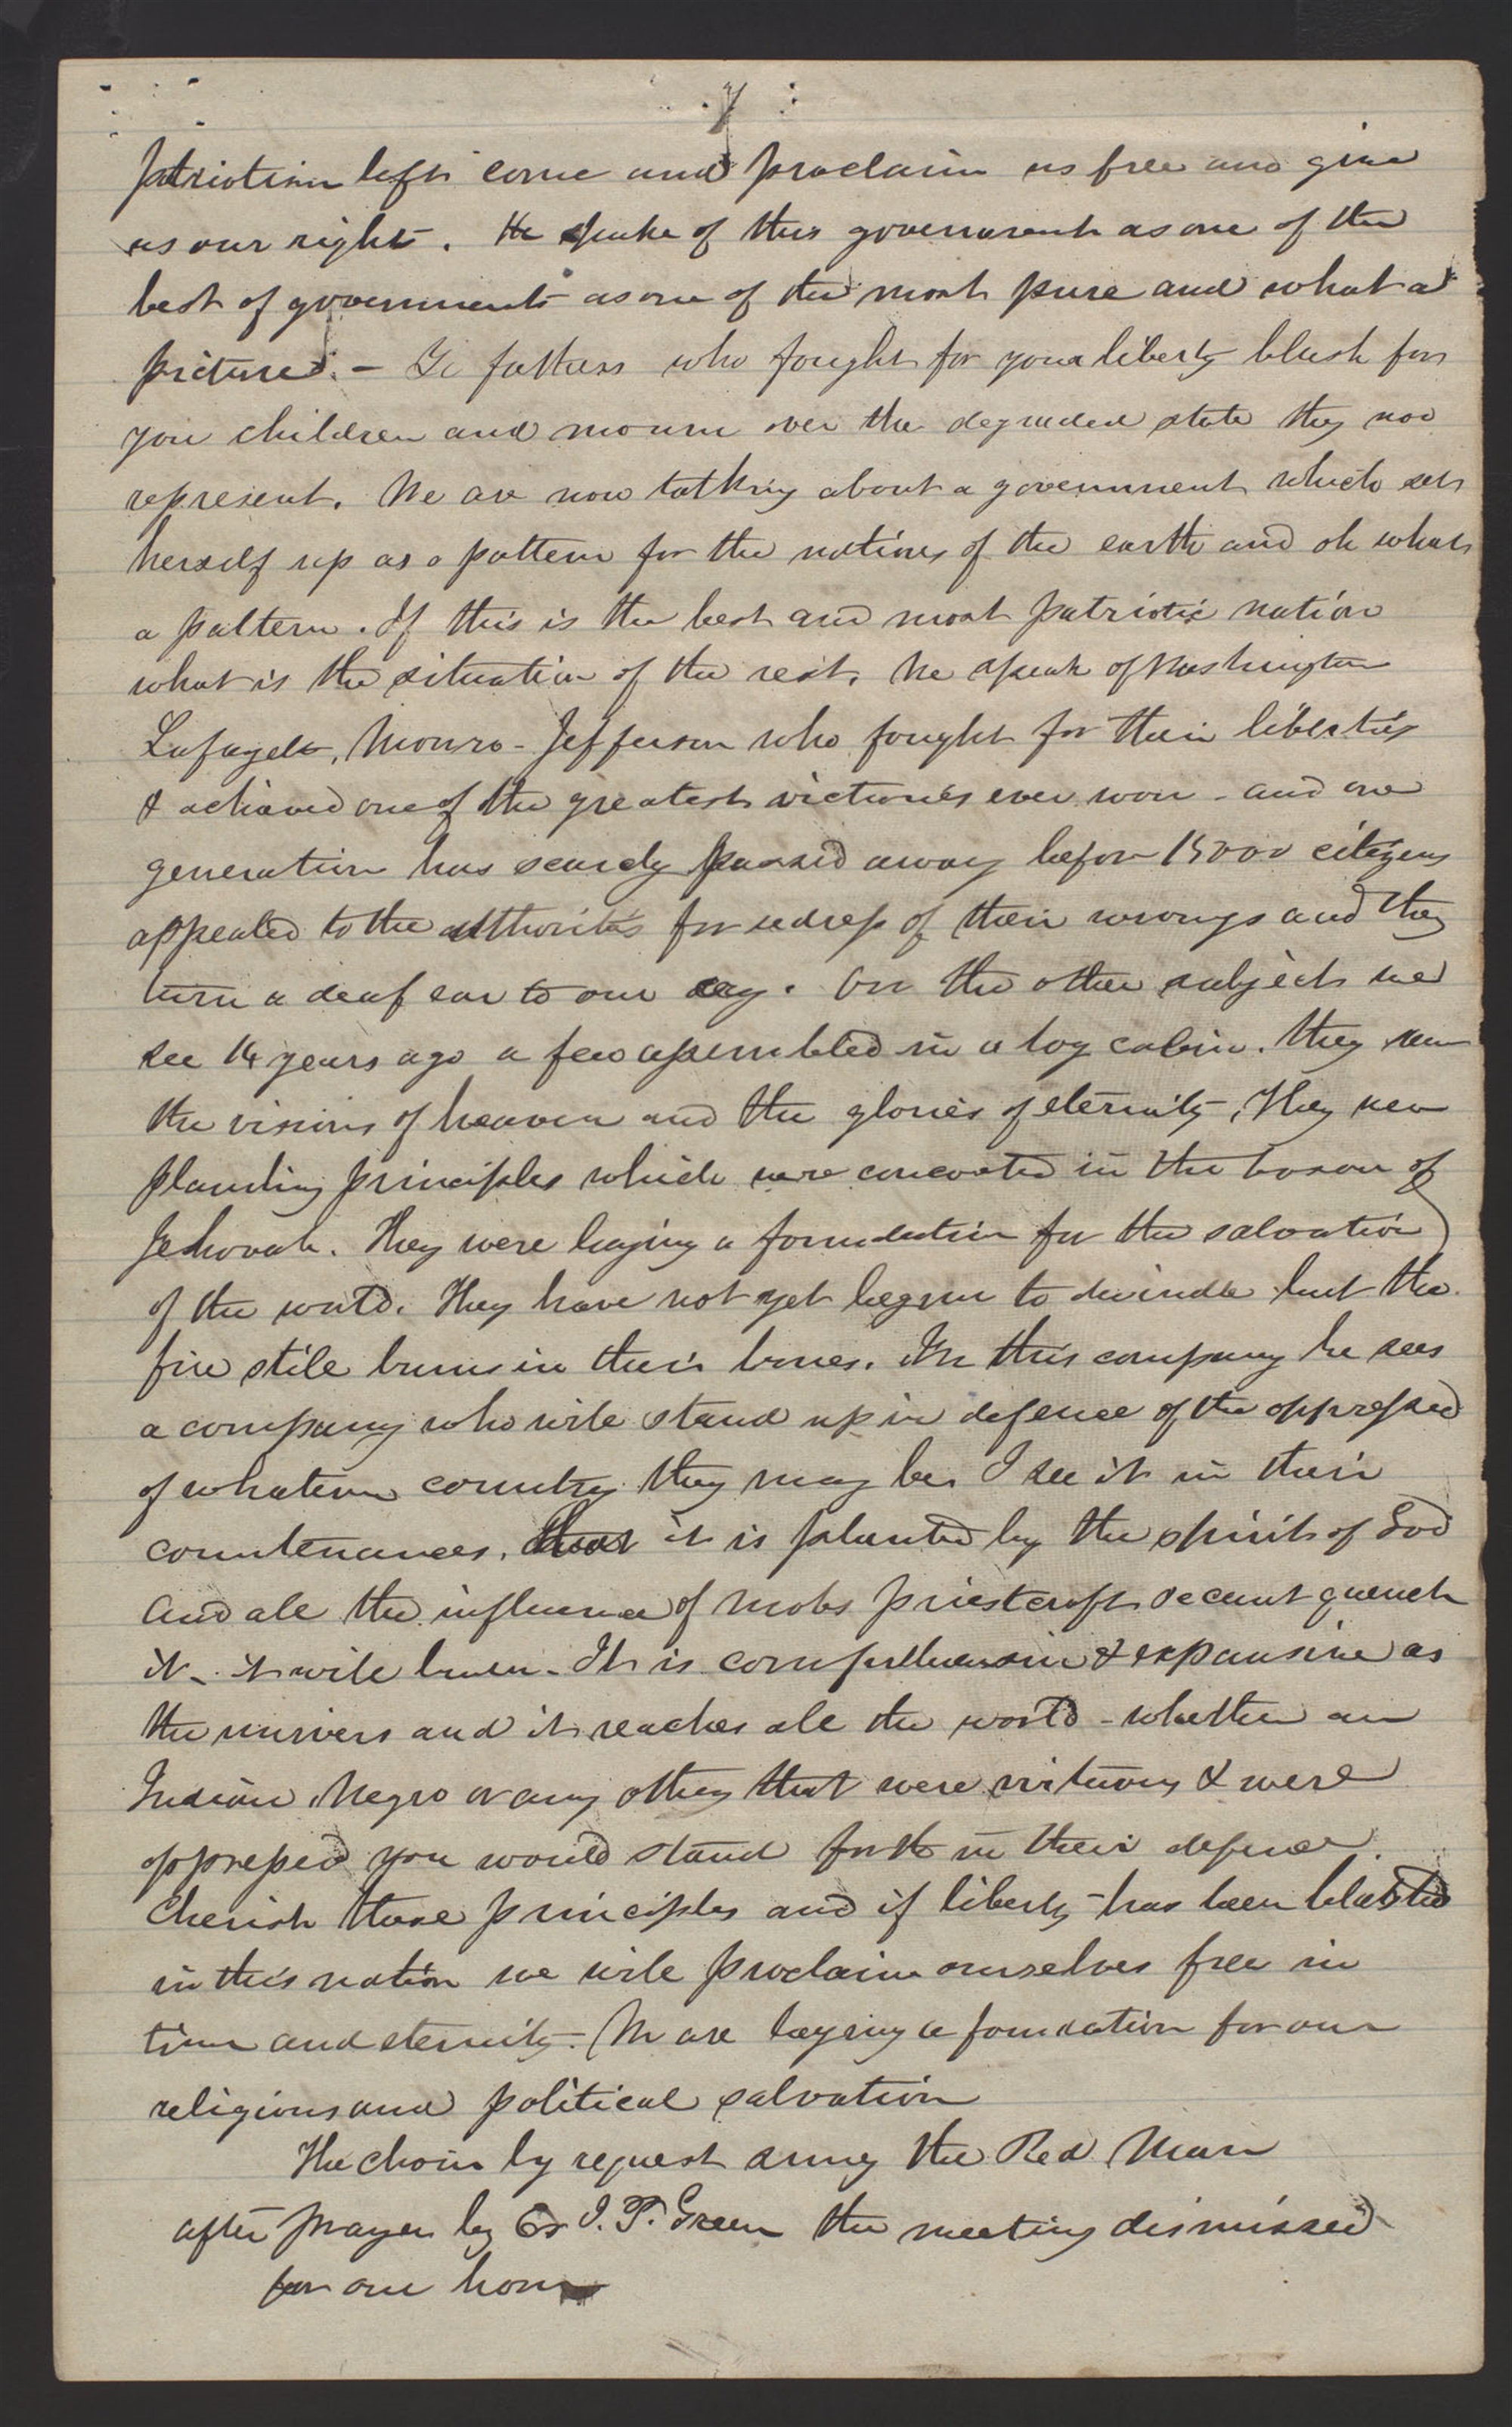 7
patriotism left come and proclaim us free and give
us our rights. He spake of this government as one of the
best of governments as one of the most pure and what a
picture. - Ye fathers who fought for your liberty blush for
you children and mourn over the degraded state they now
represent. We are now talking about a government which sets
herself up as a pattern for the nations of the earth and oh what
a pattern. If this is the best and most patriotic nation
what is the situation of the rest. We speak of Washington
Lafayett, Monro - Jefferson who fought for their liberties
& achieved one of the greatest victories ever won - and one
generation has scarcly passed away before 15000 citizens
appealed to the athorites for redress of their wrongs and they
turn a deaf ear to our cry. On the other subject we
see 14 years ago a few assembled in a log cabin. they saw
the visions of heaven and the glories of eternity, They were
planting principles which were concocted in the bosom of
Jehovah. They were laying a foundation for the salvation
of the world. They have not yet begun to dwindle but the
fire still burns in their bones. In this company he sees
a company who will stand up in defence of the oppressed
of whatever country they may be. I see it in their
countenances. it is planted by the spirit of God
and all the influence of mobs priestcraft &c cant quench
it - it will burn - It is comprehensive & expansive as
the univers and it reaches all the world - whether an
Indian, Negro or any others that were virtuous & were
oppressed you would stand forth in their defence.
Cherish those principles and if liberty has been blasted
in this nation we will proclaim ourselves free in
time and eternity. We are laying a foundation for our
religious and political salvation
The choir by request sung the Red Man
after prayer by Er J. P. Green the meeting dismissed
for one hour